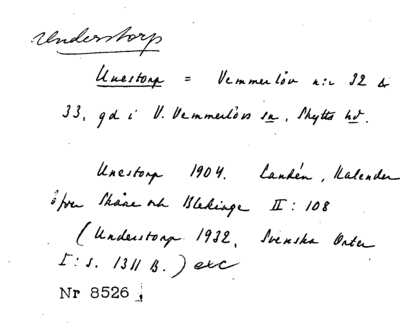 Understorp
Unestorp = Vemmerlöv n:r 32 &
33, gd i V. Vemmerlövs sn, Skytts hd.
Unestorp 1904. Landén, Kalender
öfver Skåne och Blekinge II : 108
(Understorp 1932, Svenska Orter
I : s. 1311 B.) exc
Nr 8526